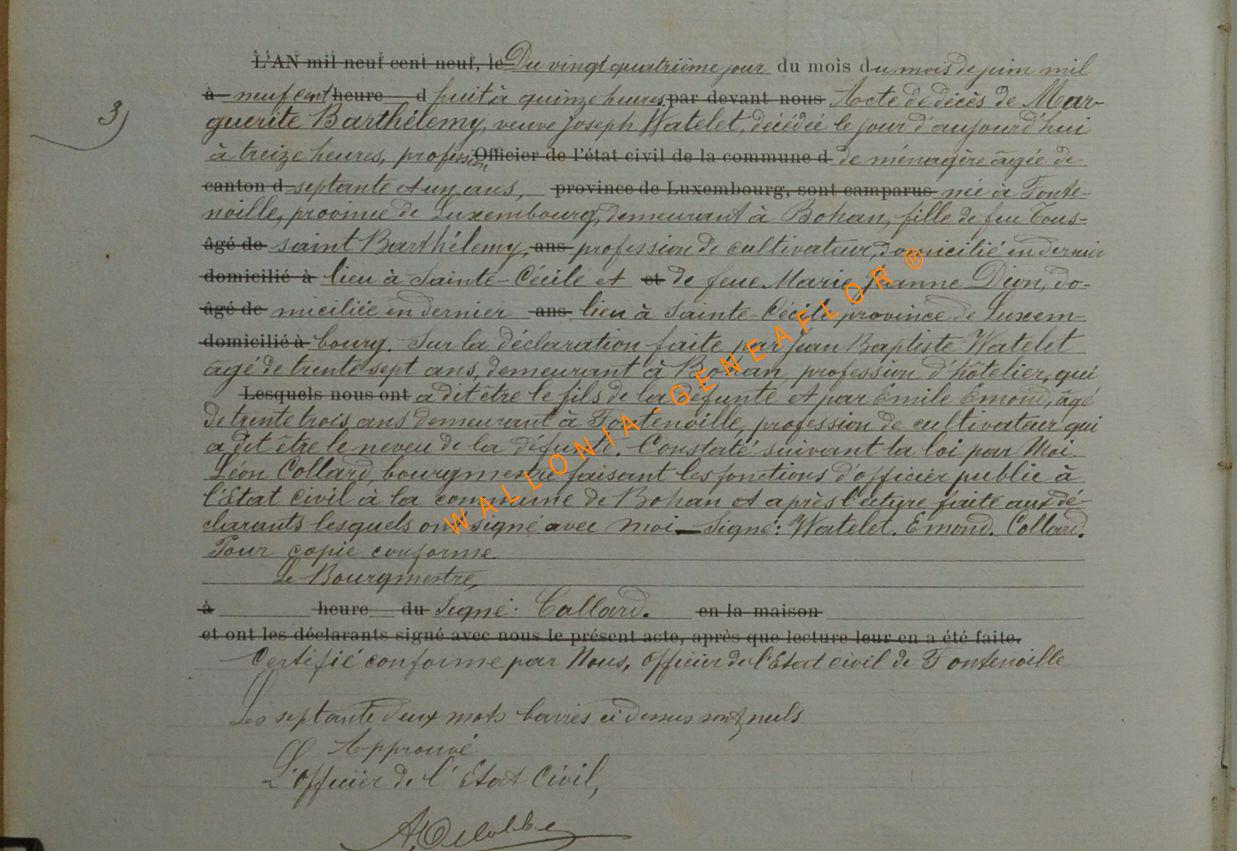 L'AN mil neuf cent neuf, le Du vingt quatrième jour du mois du mois de juin mil
à neuf cent heure d huit à quinze heures par devant nous Acte de décès de Mar-
3) guerite Barthélemy, veuve Joseph Watelet, décédée le jour d'aujourd'hui
à treize heures, profession Officier de l'état civil de la commune d de ménagère âgée de
canton d septante et un ans, province de Luxembourg, sont camparus née à Fonte-
noille, province de Luxembourg, demeurant à Bohan, fille de feu Tous-
âgé de saint Barthélemy, ans profession de cultivateur, domicilié en dernier
domicilié à lieu à Sainte-Cécile et et de feue Marie Jeanne Dion, do-
âgé de miciliée en dernier ans lieu à Sainte-Cécile province de Luxem-
domicilié à bourg. Sur la déclaration faite par Jean Baptiste Watelet
âgé de trente sept ans, demeurant à Bohan, profession d'hôtelier, qui
Lesquels nous ont a dit être le fils de la défunte et par Emile Emond, âgé
de trente trois ans demeurant à Fontenoille, profession de cultivateur qui
a dit être le neveu de la défunte. Constaté suivant la loi par Moi
Léon Collard, bourgmestre faisant les fonctions d'officier public à
l'Etat Civil à la commune de Bohan et après lecture faite aux dé-
clarants lesquels ont signé avec moi — Signé: Watelet. Emond. Collard.
Pour copie conforme
Le Bourgmestre,
à heure du Signé: Collard. en la maison
et ont les déclarants signé avec nous le présent acte, après que lecture leur en a été faite.
Certifié conforme par Nous, Officier de l'Etat civil de Fontenoille
Les septante deux mots barrés ci dessus sont nuls
Approuvé
L'Officier de l'Etat Civil,
WALLONIA-GENEAFLOR ®